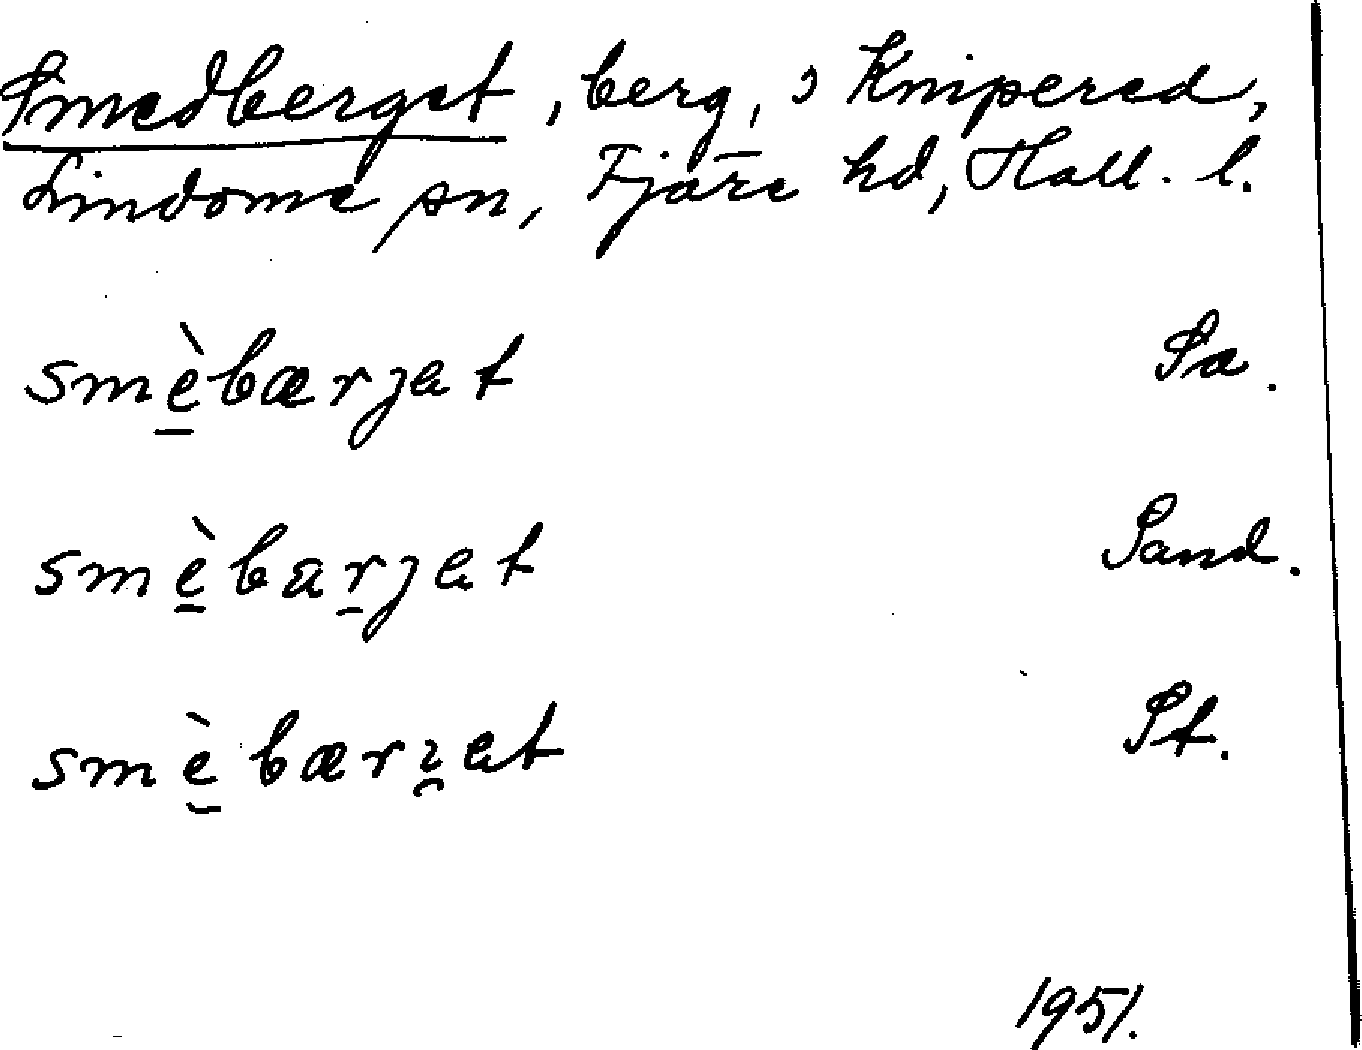 Smedberget, berg, i Knipered,
Lindome sn, Fjäre hd, Hall. l.
smèbærjet Sa.
smèbarjet Sand.
smèbæri̯et St.
1951.